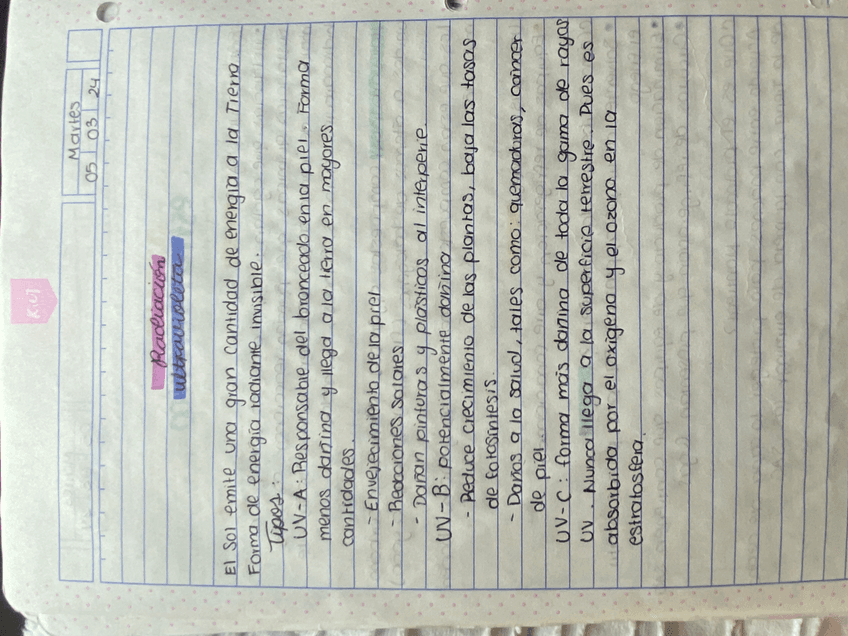 Martes
05 03 24
Radiación
ultravioleta
El Sol emite una gran cantidad de energía a la Tierra
Forma de energía radiante invisible.
Tipos:
UV-A: Responsable del bronceado en la piel. Forma
menos dañina y llega a la tierra en mayores
cantidades.
- Envejecimiento de la piel
- Reacciones solares
- Dañan pinturas y plásticos al interperie.
UV-B: potencialmente dañina
- Reduce crecimiento de las plantas, baja las tasas
de fotosíntesis.
- Daños a la salud, tales como: quemaduras, cáncer
de piel.
UV-C: forma más dañina de toda la gama de rayos
UV. Nunca llega a la superficie terrestre. Pues es
absorbida por el oxígeno y el ozono en la
estratosfera.